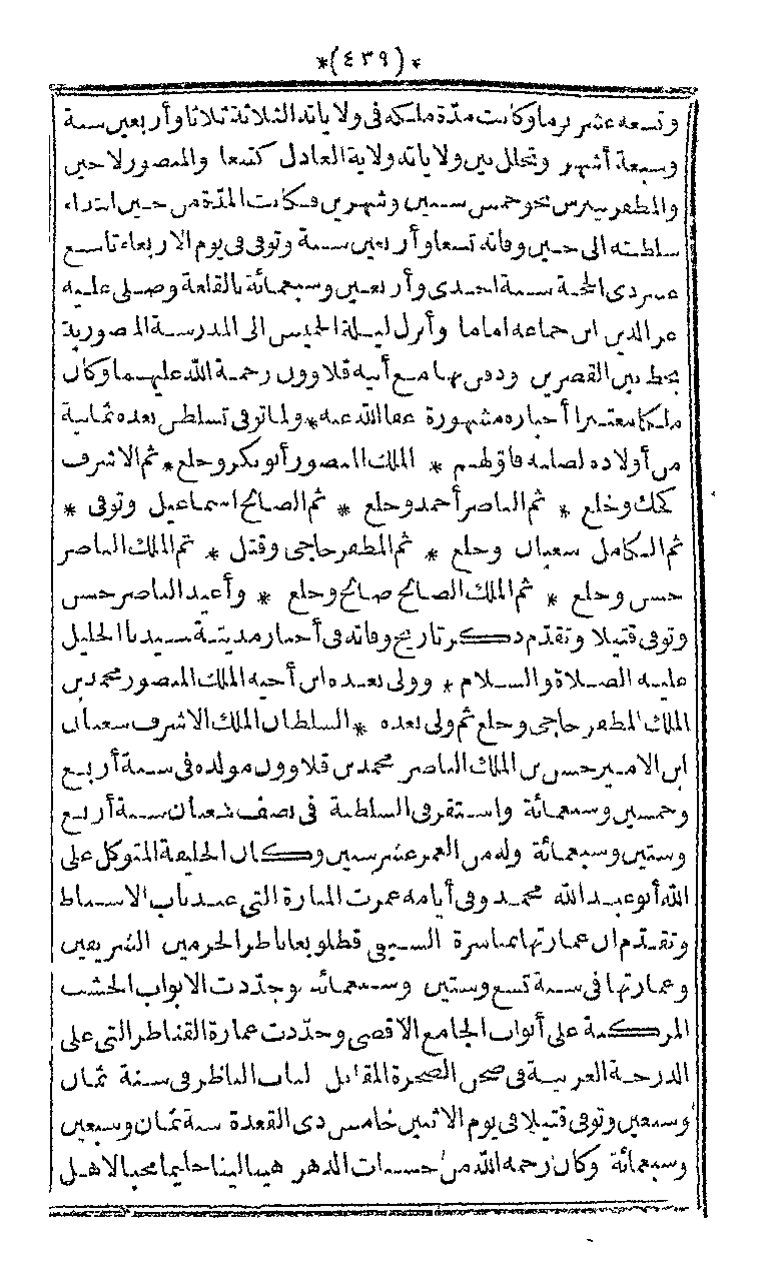 *(٤٣٩)*
وتسعه عشر يوما وكانت مدّة ملكه فى ولاياته الثلاثة ثلاثا وأربعين سنة
وسبعة أشهر وتخلل بين ولاياته ولاية العادل كتبغا والمنصور لاجين
والمظفر بيبرس نحو خمس سنين وشهرين فكانت المدّة من حين ابتداء
سلطنته الى حين وفاته تسعا وأربعين سنة وتوفى فى يوم الاربعاء تاسع
عشر ذى الحجة سنة احدى وأربعين وسبعمائة بالقلعة وصلى عليه
عز الدين ابن جماعه اماما وأنزل ليلة الخميس الى المدرسة المنصورية
بخط بين القصرين ودفن بها مع أبيه قلاوون رحمة الله عليهما وكان
ملكا معتبرا أخباره مشهورة عفا الله عنه * ولما توفى تسلطن بعده ثمانية
من أولاده لصلبه فاوّلهم * الملك المنصور أبو بكر وخلع * ثم الاشرف
كجك وخلع * ثم الناصر أحمد وخلع * ثم الصالح اسماعيل وتوفى *
ثم الكامل شعبان وخلع * ثم المظفر حاجى وقتل * ثم الملك الناصر
حسن وخلع * ثم الملك الصالح صالح وخلع * وأعيد الناصر حسن
وتوفى قتيلا وتقدّم ذكر تاريخ وفاته فى أخبار مدينة سيدنا الخليل
عليه الصلاة والسلام * وولى بعده ابن أخيه الملك المنصور محمد بن
الملك المظفر حاجى وخلع ثم ولى بعده * السلطان الملك الاشرف شعبان
ابن الامير حسن بن الملك الناصر محمد بن قلاوون مولده فى سنة أربع
وخمسين وسبعمائة واستقر فى السلطنة فى نصف شعبان سنة أربع
وستين وسبعمائة وله من العمر عشر سنين وكان الخليفة المتوكل على
الله أبو عبد الله محمد وفى أيامه عمرت المنارة التى عند باب الاسباط
وتقدّم ان عمارتها بمباشرة السيفى قطلوبغا ناظر الحرمين الشريفين
وعمارتها فى سنة تسع وستين وسبعمائة وجدّدت الابواب الخشب
المركبة على أبواب الجامع الاقصى وجدّدت عمارة القناطر التى على
الدرجة الغربية فى صحن الصخرة المقابل لباب الناظر فى سنة ثمان
وسبعين وتوفى قتيلا فى يوم الاثنين خامس ذى القعدة سنة ثمان وسبعين
وسبعمائة وكان رحمه الله من حسنات الدهر هينا لينا حليما محبا لاهل